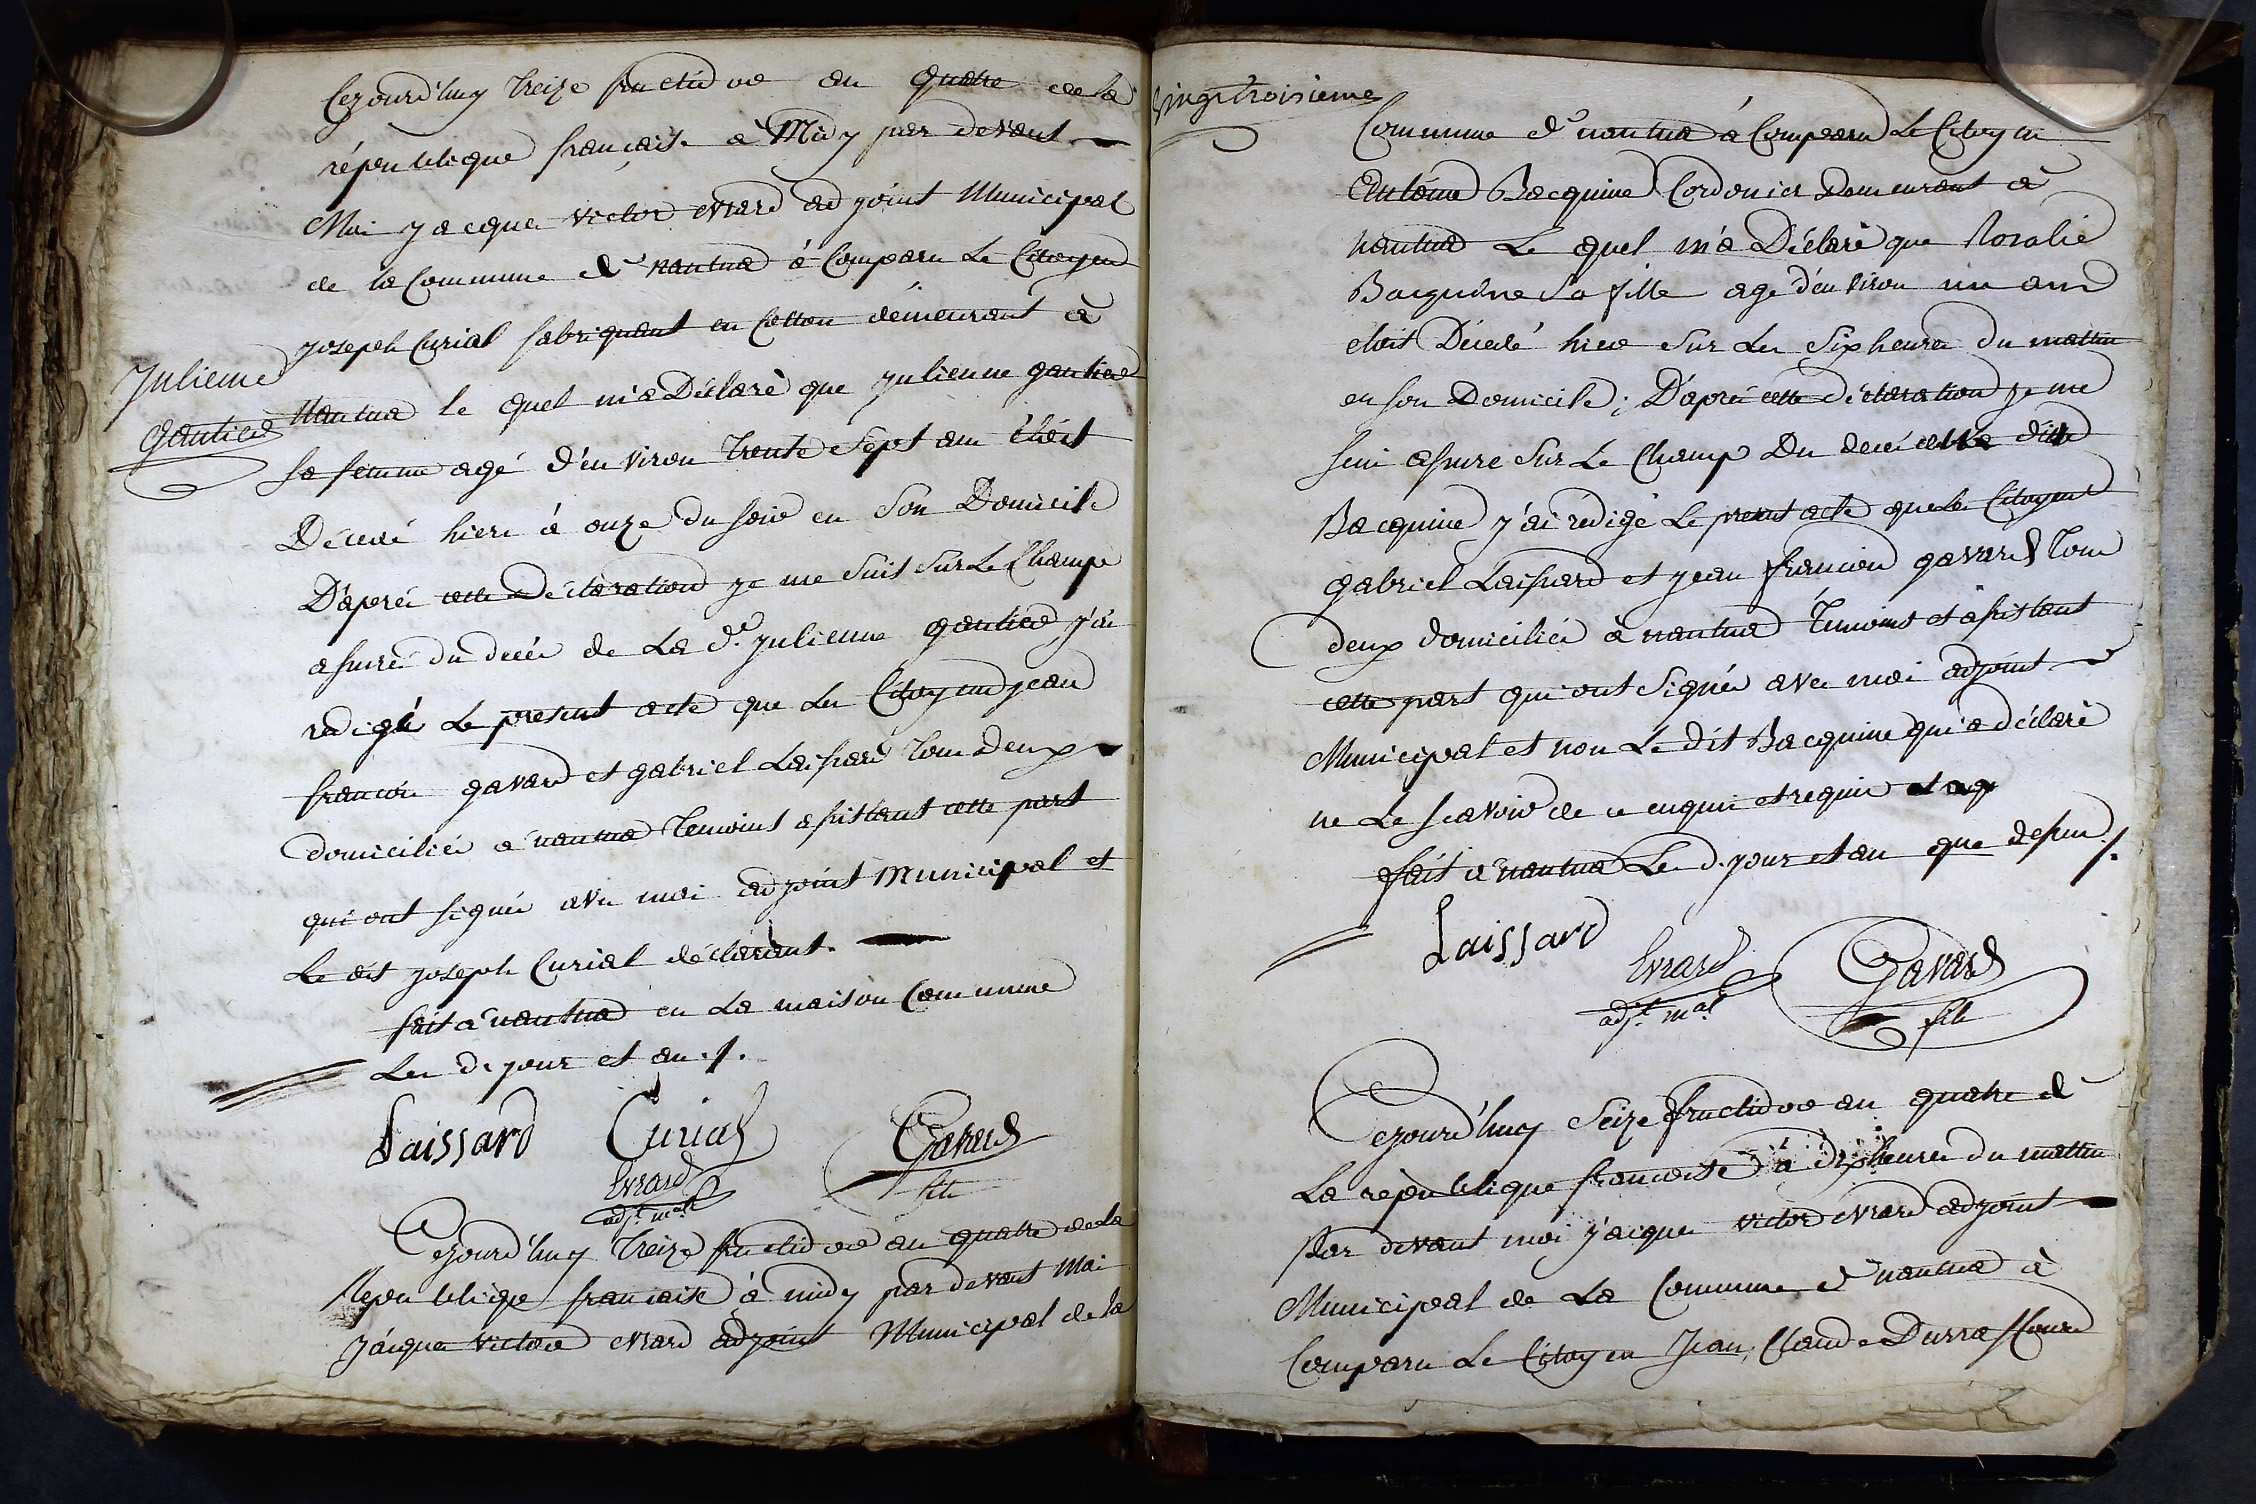 Cejourd'huy treize fructidor an quatre de la
république française à Midy par devant
Moi jacque victor evrard adjoint Municipal
de la Commune de nantua à Comparu Le Citoyen
joseph Curial fabriquant en Cotton démeurant à
Julienne
Gautier
Nantua le quel m'a Déclaré que julienne gautier
sa femme agé d'environ trente sept ans étoit
Décédé hiere à onze du soir en Son Domicile
D'apres cette Déclaration je me suis Sur Le Champ
assuré du decès de La d.e julienne gautier j'ai
redigé Le présent acte que Les Citoyens jean
francois gavard et gabriel Laissard tous deux
domiciliés a nantua temoins assistant cette part
qui ont signés avec moi adjoint Municipal et
Le dit joseph Curial déclarant.
fait a nantua en La maison Commune
Les d. jour et an ./.
Laissard Curial Gavard
Evrard fils
adj.t m.al
Cejourd'huy treize fructidor an quatre de la
Republique francaise à midy par devant Moi
jacque victor evrard adjoint Municipal de la
vingt troisieme
Commune de nantua à Comparu Le Citoyen
Antoine Bacquine Cordonier Demeurant à
nantua Le quel m'a Déclaré que Rosalie
Bacquine Sa fille age d'environ un an
etoit Décédé hier Sur Les Six heures du mattin
en son Domicile; D'aprés cette déclaration je me
suis assure Sur Le Champ Du decé de la dite
Bacquine j'ai rédigé Le present acte que Les Citoyens
gabriel Laissard et jean francois gavard tous
deux domiciliés à nantua temoins et assistant
cette part qui ont Signés avec moi adjoint
Municipal et non Le dit Bacquine qui a déclaré
ne Le scavoir de ce enquis et requis
fait a nantua Les d. jour et an que dessus ./.
Laissard
Evrard Gavard
adj.t m.al fils
Cejourd'huy Seize fructidor an quatre de
La république francaise à dix heures du mattin
Par devant moi jacque victor evrard adjoint
Municipal de La Commune de nantua à
Comparu Le Citoyen Jean Claude